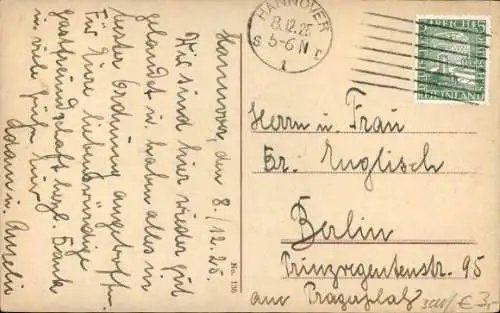 Hannover, den 8./12.25.
Wir sind hier wieder gut
gelandet u. haben alles in
bester Ordnung angetroffen.
Für Eure liebenswürdige
Gastfreundschaft herzl. Dank
u. viele Grüße Eure
u. Amelie
No. 136
HANNOVER
8.12.25
S 5-6 N
1
DEUTSCHES REICH 5
RHEINLAND
Herrn u. Frau
Dr. Englisch
Berlin
Prinzregentenstr. 95
am Pragerplatz
€ 3,-